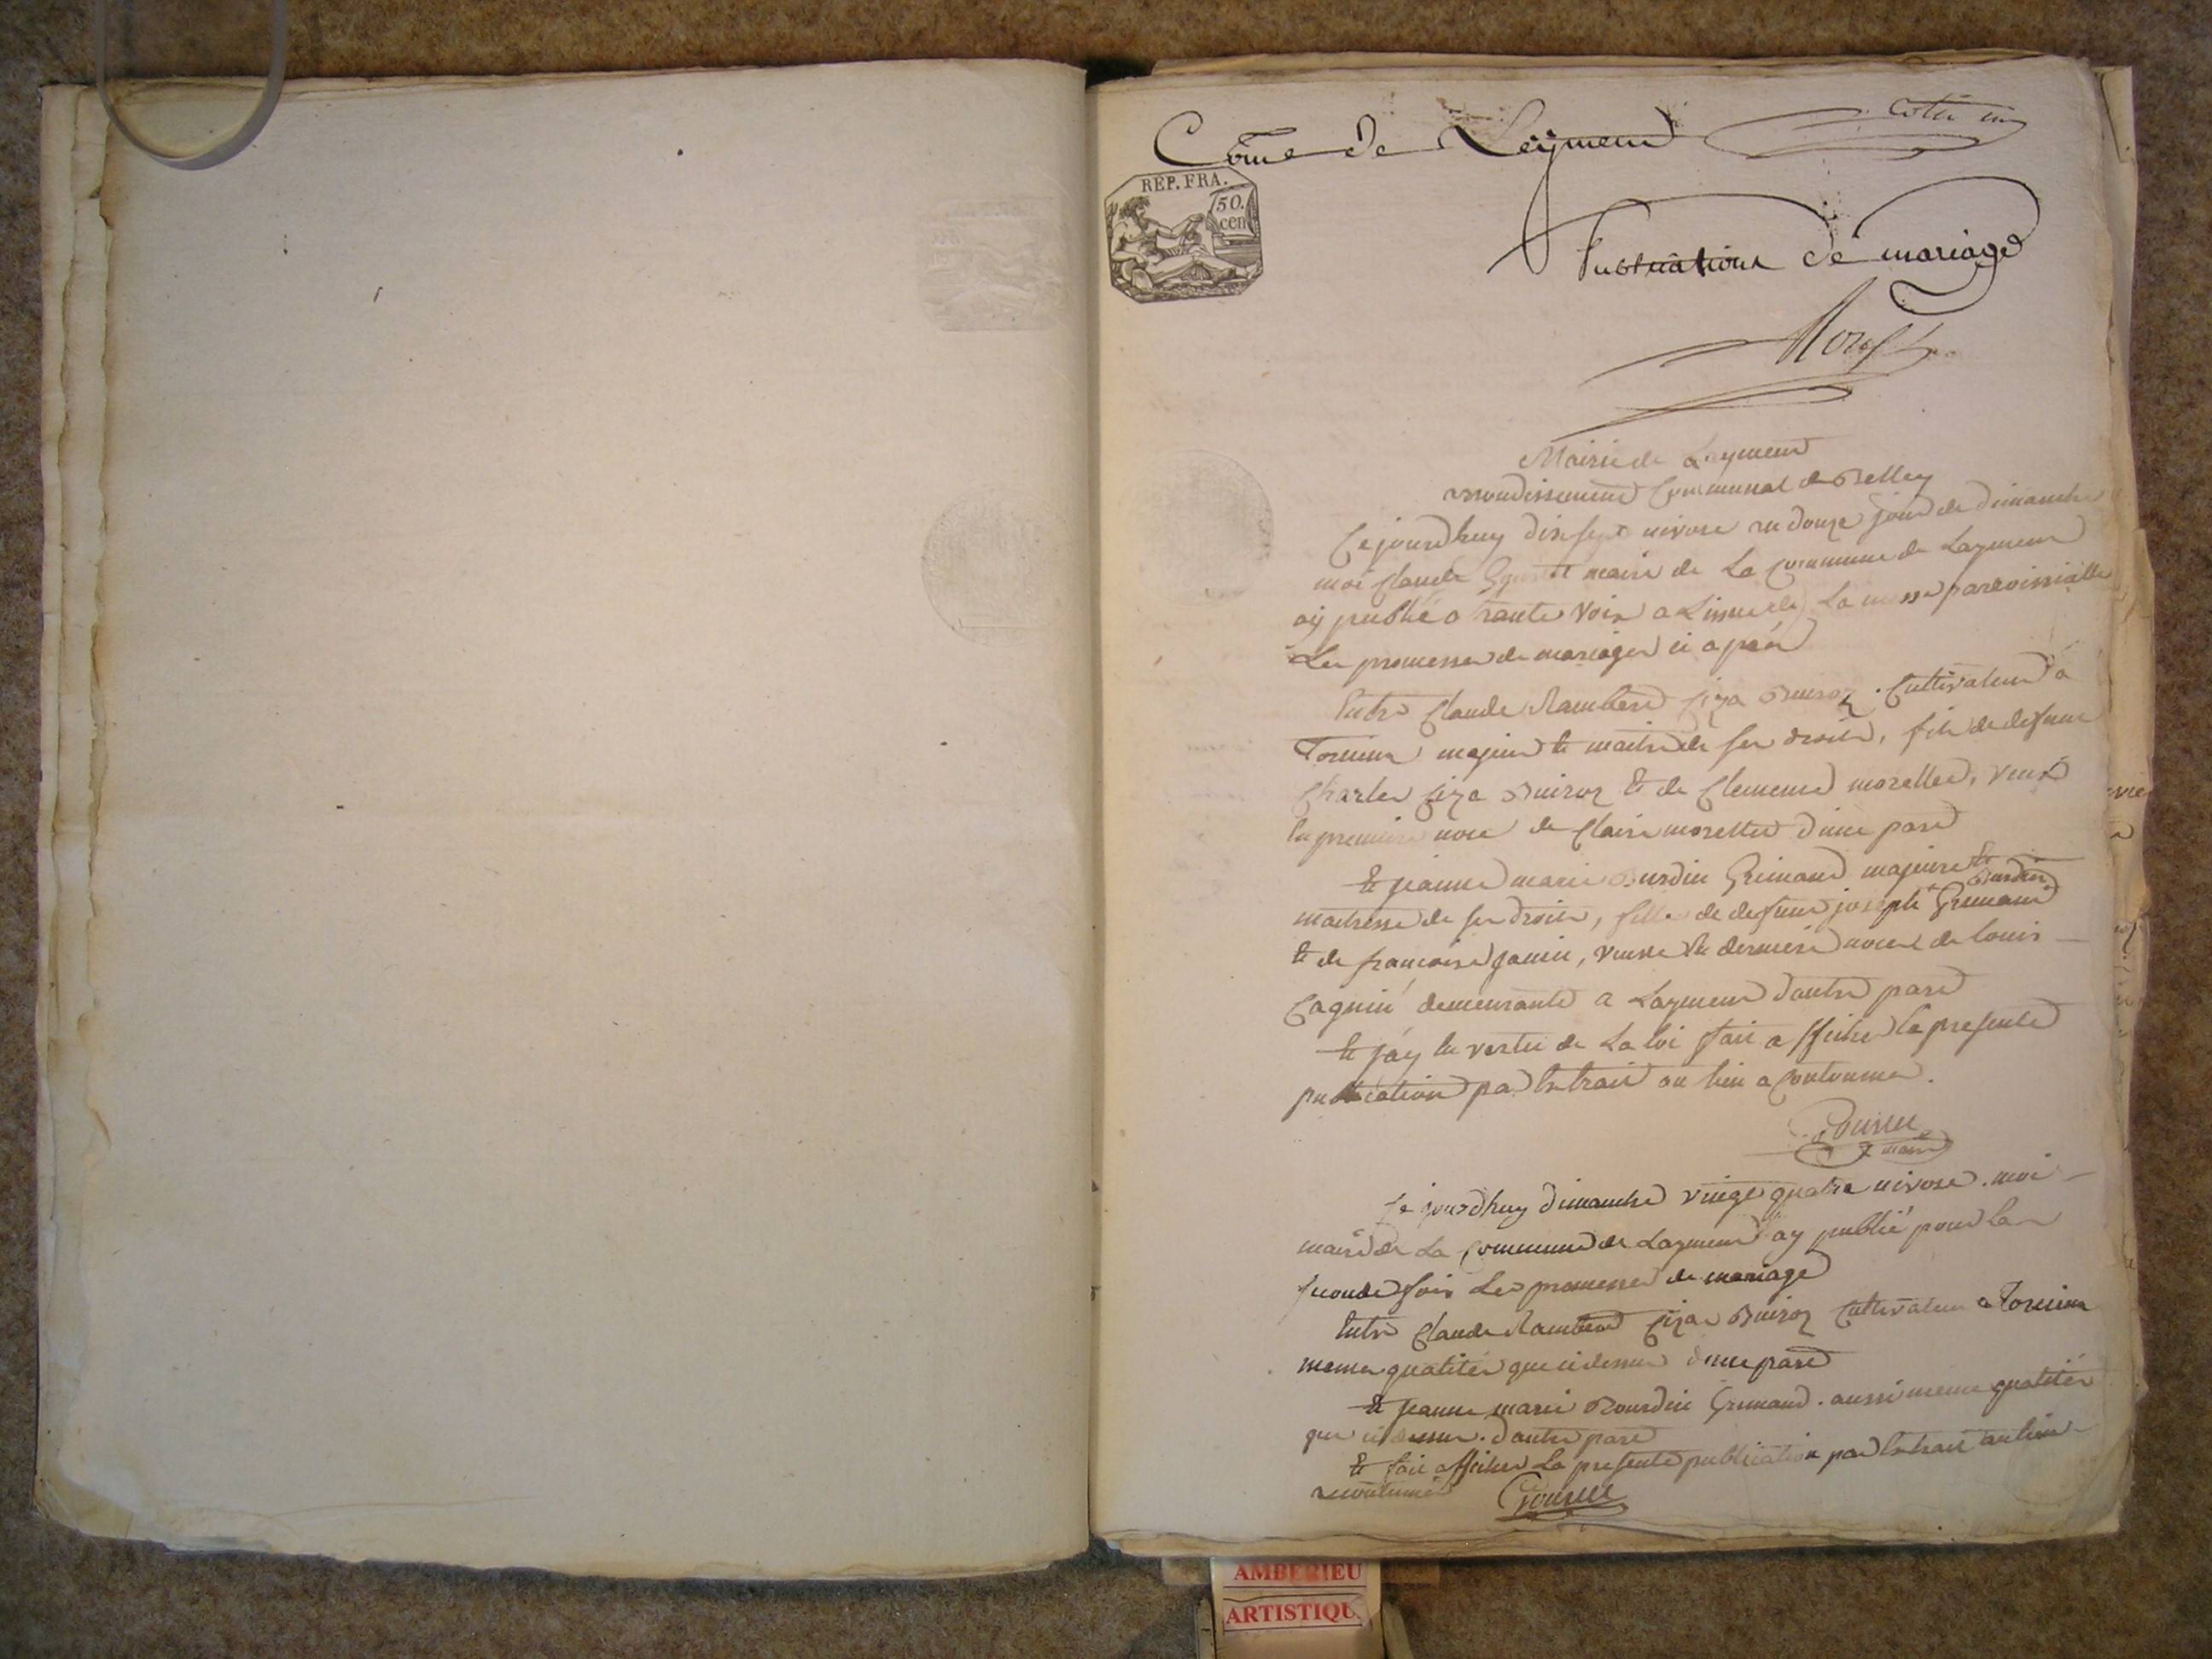 Cōme de Leymend
Cotte un
REP. FRA.
50.
cen
Publications de mariage
Mairie de Laymend
arrondissement Communal de Belley
Cejourdhuy dixsept nivose an douze jour de dimanche
moi Claude maire de La Commune de Laymend
ay publié a haute Voix a Lissue de La messe paroissialle
Les promesses de mariages ci apres
Entre Claude Rambert Ciza Buiroz Cultivateur a
Torcieux majeur et maitre de ses droits, fils de defunt
Charles Ciza Buiroz et de Clemence morellet, veuf
En premiere noce de Claire morellet dune part
et jeanne marie Burdin Grimand majeure et
maitresse de ses droits, fille de defunt joseph Burdin Grimand
et de francoise Janin, veuve En derniere noce de louis
Cagnin demeurante a Laymend dautre part
et jay En vertu de La loi fait afficher la presente
publication par Extrait au lieu acoutumes.
maire
Ce jourdhuy dimanche vingt quatre nivose. moi
maire de La Commune de Laymend ay publié pour la
seconde fois Les promesses de mariage
Entre Claude Rambert Ciza Buiroz Cultivateur a Torcieux
memes qualités que cidessus dune part
et Jeanne marie Bourdin Grimand. aussi meme qualités
que cidessus. dautre part
et fait afficher La presente publication par Extrait au lieu
acoutumés
AMBERIEU
ARTISTIQU